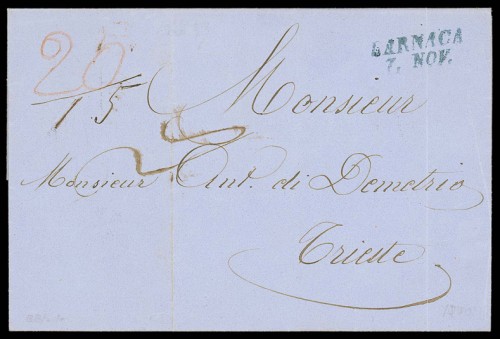 LARNACA
7. NOV.
20
15
Monsieur
Monsieur Ant. di Demetrio
Trieste